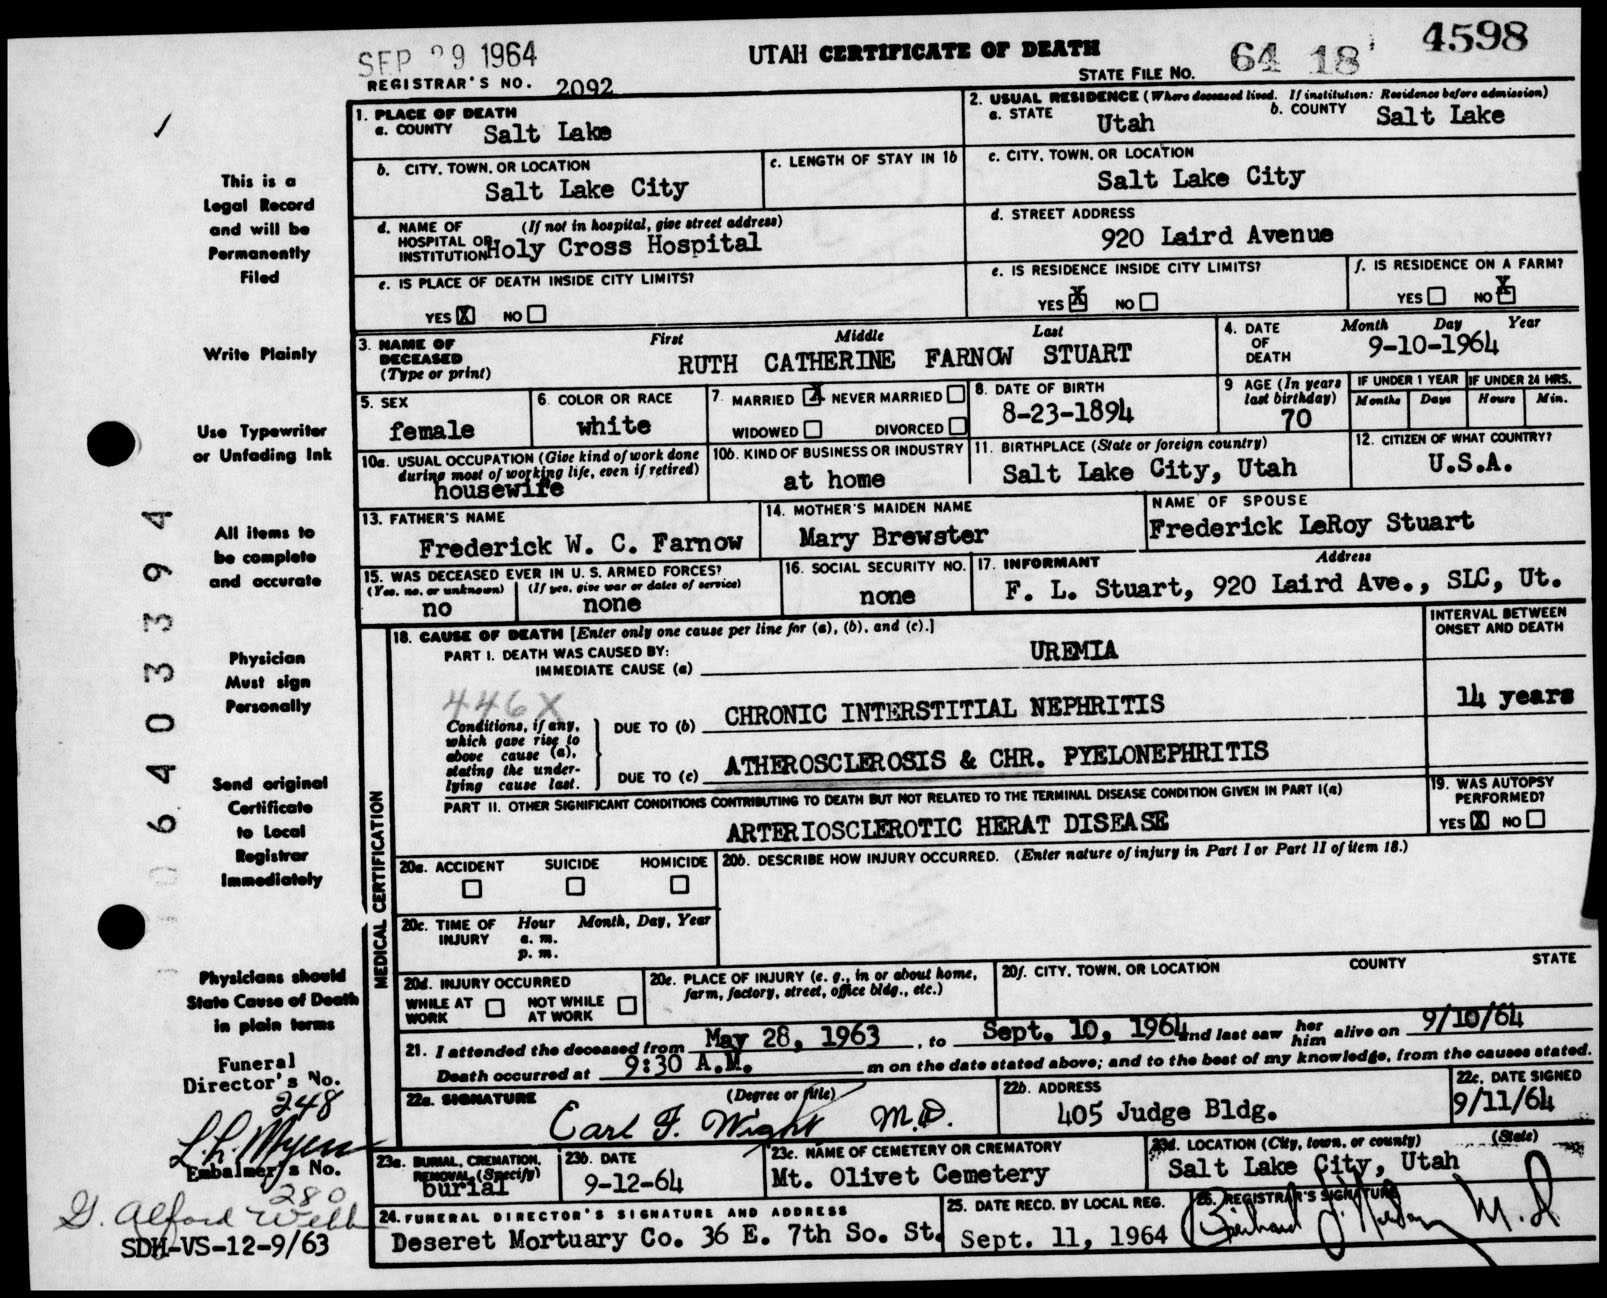 SEP 29 1964
UTAH CERTIFICATE OF DEATH
64 18
4598
STATE FILE NO.
REGISTRAR'S NO. 2092
1. PLACE OF DEATH
a. COUNTY Salt Lake
2. USUAL RESIDENCE (Where deceased lived. If institution: Residence before admission)
a. STATE Utah b. COUNTY Salt Lake
b. CITY, TOWN, OR LOCATION
Salt Lake City
c. LENGTH OF STAY IN 1b
c. CITY, TOWN, OR LOCATION
Salt Lake City
d. NAME OF HOSPITAL OR INSTITUTION (If not in hospital, give street address)
Holy Cross Hospital
d. STREET ADDRESS
920 Laird Avenue
e. IS PLACE OF DEATH INSIDE CITY LIMITS?
YES X NO
e. IS RESIDENCE INSIDE CITY LIMITS?
YES X NO
f. IS RESIDENCE ON A FARM?
YES NO X
3. NAME OF DECEASED (Type or print)
First Middle Last
RUTH CATHERINE FARNOW STUART
4. DATE OF DEATH
Month Day Year
9-10-1964
5. SEX
female
6. COLOR OR RACE
white
7. MARRIED X NEVER MARRIED
WIDOWED DIVORCED
8. DATE OF BIRTH
8-23-1894
9 AGE (In years last birthday)
70
IF UNDER 1 YEAR
Months Days
IF UNDER 24 HRS.
Hours Min.
10a. USUAL OCCUPATION (Give kind of work done during most of working life, even if retired)
housewife
10b. KIND OF BUSINESS OR INDUSTRY
at home
11. BIRTHPLACE (State or foreign country)
Salt Lake City, Utah
12. CITIZEN OF WHAT COUNTRY?
U.S.A.
13. FATHER'S NAME
Frederick W. C. Farnow
14. MOTHER'S MAIDEN NAME
Mary Brewster
NAME OF SPOUSE
Frederick LeRoy Stuart
15. WAS DECEASED EVER IN U. S. ARMED FORCES?
(Yes, no, or unknown) (If yes, give war or dates of service)
no none
16. SOCIAL SECURITY NO.
none
17. INFORMANT Address
F. L. Stuart, 920 Laird Ave., SLC, Ut.
MEDICAL CERTIFICATION
18. CAUSE OF DEATH [Enter only one cause per line for (a), (b), and (c).]
INTERVAL BETWEEN ONSET AND DEATH
PART I. DEATH WAS CAUSED BY:
IMMEDIATE CAUSE (a) UREMIA
446X
Conditions, if any, which gave rise to above cause (a), stating the underlying cause last.
DUE TO (b) CHRONIC INTERSTITIAL NEPHRITIS 14 years
DUE TO (c) ATHEROSCLEROSIS & CHR. PYELONEPHRITIS
PART II. OTHER SIGNIFICANT CONDITIONS CONTRIBUTING TO DEATH BUT NOT RELATED TO THE TERMINAL DISEASE CONDITION GIVEN IN PART I(a)
ARTERIOSCLEROTIC HERAT DISEASE
19. WAS AUTOPSY PERFORMED?
YES X NO
20a. ACCIDENT SUICIDE HOMICIDE
20b. DESCRIBE HOW INJURY OCCURRED. (Enter nature of injury in Part I or Part II of item 18.)
20c. TIME OF INJURY
Hour Month, Day, Year
a. m.
p. m.
20d. INJURY OCCURRED
WHILE AT WORK NOT WHILE AT WORK
20e. PLACE OF INJURY (e. g., in or about home, farm, factory, street, office bldg., etc.)
20f. CITY, TOWN, OR LOCATION COUNTY STATE
21. I attended the deceased from May 28, 1963, to Sept. 10, 1964 and last saw her him alive on 9/10/64
Death occurred at 9:30 A.M. m on the date stated above; and to the best of my knowledge, from the causes stated.
22a. SIGNATURE (Degree or title)
Carl F. Wight M.D.
22b. ADDRESS
405 Judge Bldg.
22c. DATE SIGNED
9/11/64
23a. BURIAL, CREMATION, REMOVAL (Specify)
burial
23b. DATE
9-12-64
23c. NAME OF CEMETERY OR CREMATORY
Mt. Olivet Cemetery
23d. LOCATION (City, town, or county) (State)
Salt Lake City, Utah
24. FUNERAL DIRECTOR'S SIGNATURE AND ADDRESS
Deseret Mortuary Co. 36 E. 7th So. St.
25. DATE RECD. BY LOCAL REG.
Sept. 11, 1964
26. REGISTRAR'S SIGNATURE
M.D
This is a
Legal Record
and will be
Permanently
Filed
Write Plainly
Use Typewriter
or Unfading Ink
All items to
be complete
and accurate
Physician
Must sign
Personally
Send original
Certificate
to Local
Registrar
Immediately
Physicians should
State Cause of Death
in plain terms
Funeral
Director's No.
248
L.L. Myers
Embalmer's No.
280
G. Alford Webb
SDH-VS-12-9/63
06403394